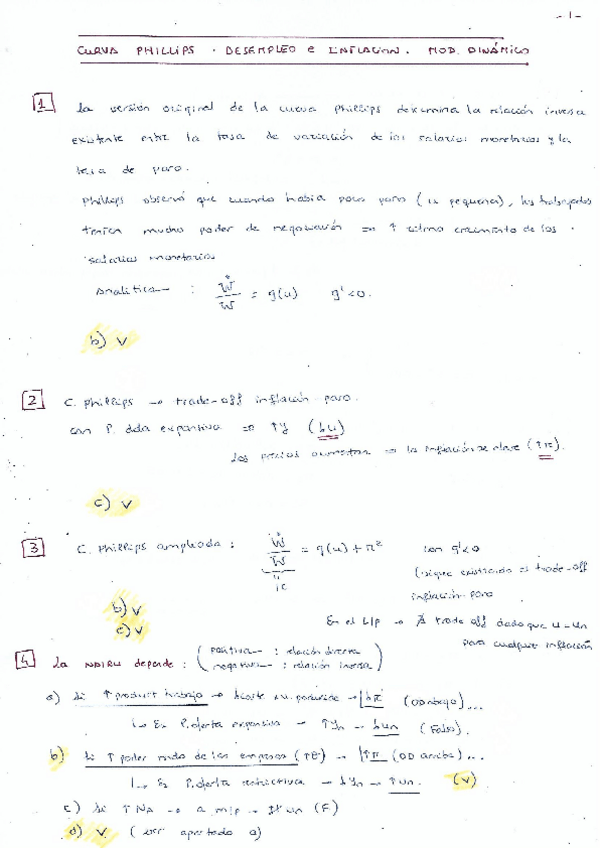 - 1 -
CURVA PHILLIPS . DESEMPLEO e INFLACION. MOD. DINÁMICO
1 La versión original de la curva Phillips determina la relación inversa
existente entre la tasa de variación de los salarios monetarios y la
tasa de paro.
Phillips observó que cuando había poco paro ( pequeña), los trabajadores
tenían mucho poder de negociación => ↑ ritmo crecimiento de los
salarios monetarios
Analítica : Ẇ/W = g(u) g'<0.
b) v
2 C. Phillips → trade-off inflación paro.
con P. dda expansiva => ↑y (↓u)
los precios aumentan => la inflación se eleve (↑π).
c) v
3 C. Phillips ampliada : Ẇ/W = g(u) + π con g'<0
(sigue existiendo => trade-off
inflación-paro
b) v
c) v
En el L/P → ∄ trade off dado que u = un
para cualquier inflación
4 La NAIRU depende : (positiva : relación directa
negativa : relación inversa)
a) Si ↑ product trabajo → ↓coste → ↓π (OD abajo)...
↳ Es P. oferta expansiva → ↑yn → ↓un (Falso).
b) Si ↑ poder mdo de las empresas (↑θ) → ↑π (OD arriba)...
↳ Es P. oferta restrictiva → ↓yn → ↑un. (v)
c) Si ↑ → a m/p → un (F)
d) v (ver apartado a)